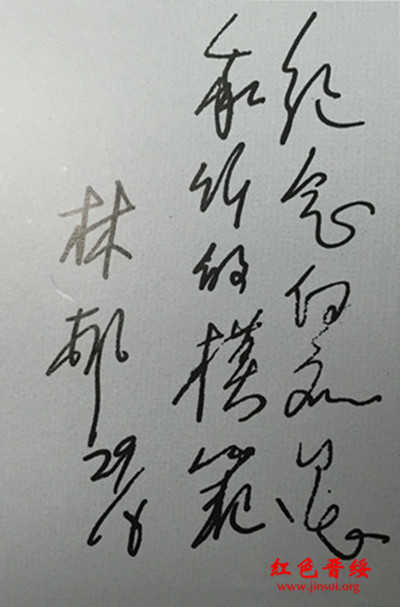 纪念白求恩
的模範
林
29/8
红色晋绥
www.jinsui.org